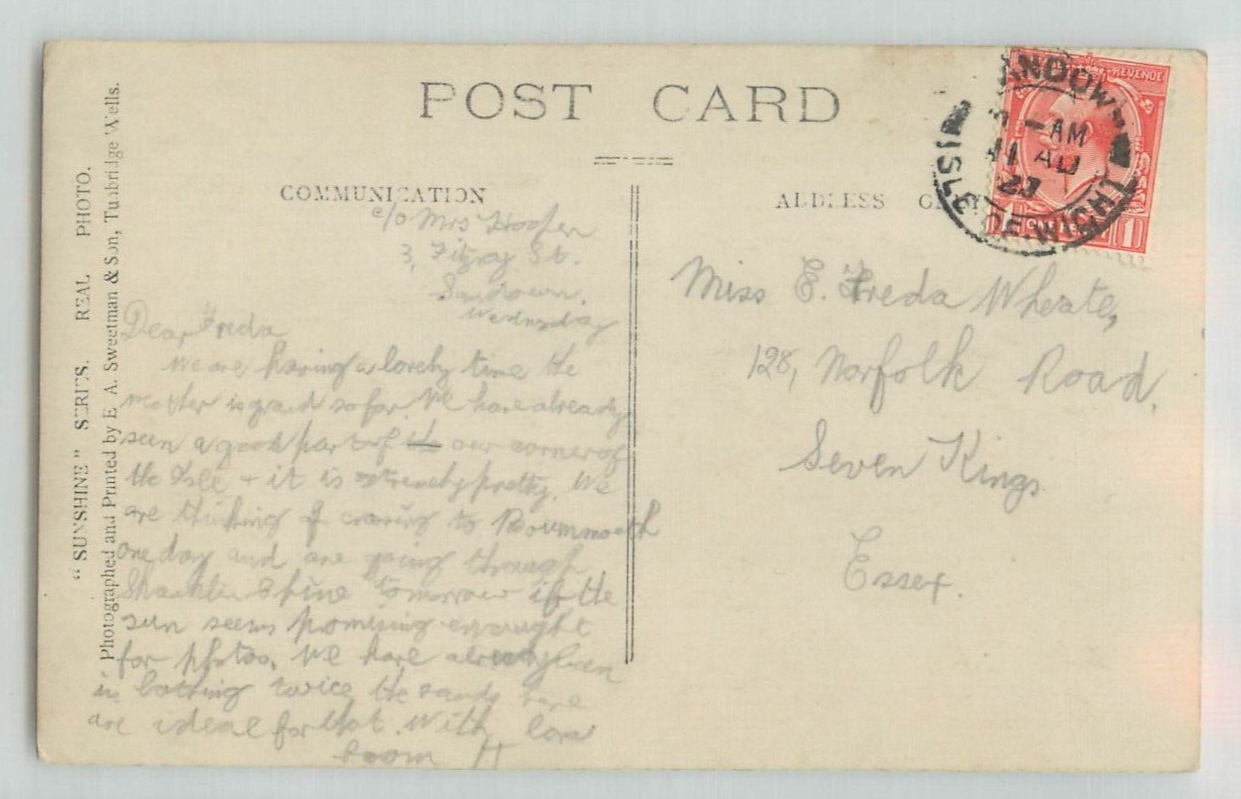 POST CARD
COMMUNICATION
ADDRESS ONLY
"SUNSHINE" SERIES. REAL PHOTO.
Photographed and Printed by E. A. Sweetman & Son, Tunbridge Wells.
REVENUE
ONE PENNY
1 1
ANDOWN
AM
11 AU
ISLE OF WIGHT
c/o Mrs Hooper
3, Fitzroy St.
Sandown,
Wednesday
Dear Freda
We are having a lovely time the
weather is grand so far. We have already
seen a good part of the our corner of
the Isle + it is extremely pretty. We
are thinking of crossing to Bournmouth
one day and are going through
Shanklin Chine tomorrow if the
sun seems promising enought
for photos. We have already been
in bathing twice the sands here
are ideal for that. With love
from H
Miss E. Freda Wheate,
128, Norfolk Road,
Seven Kings
Essex.